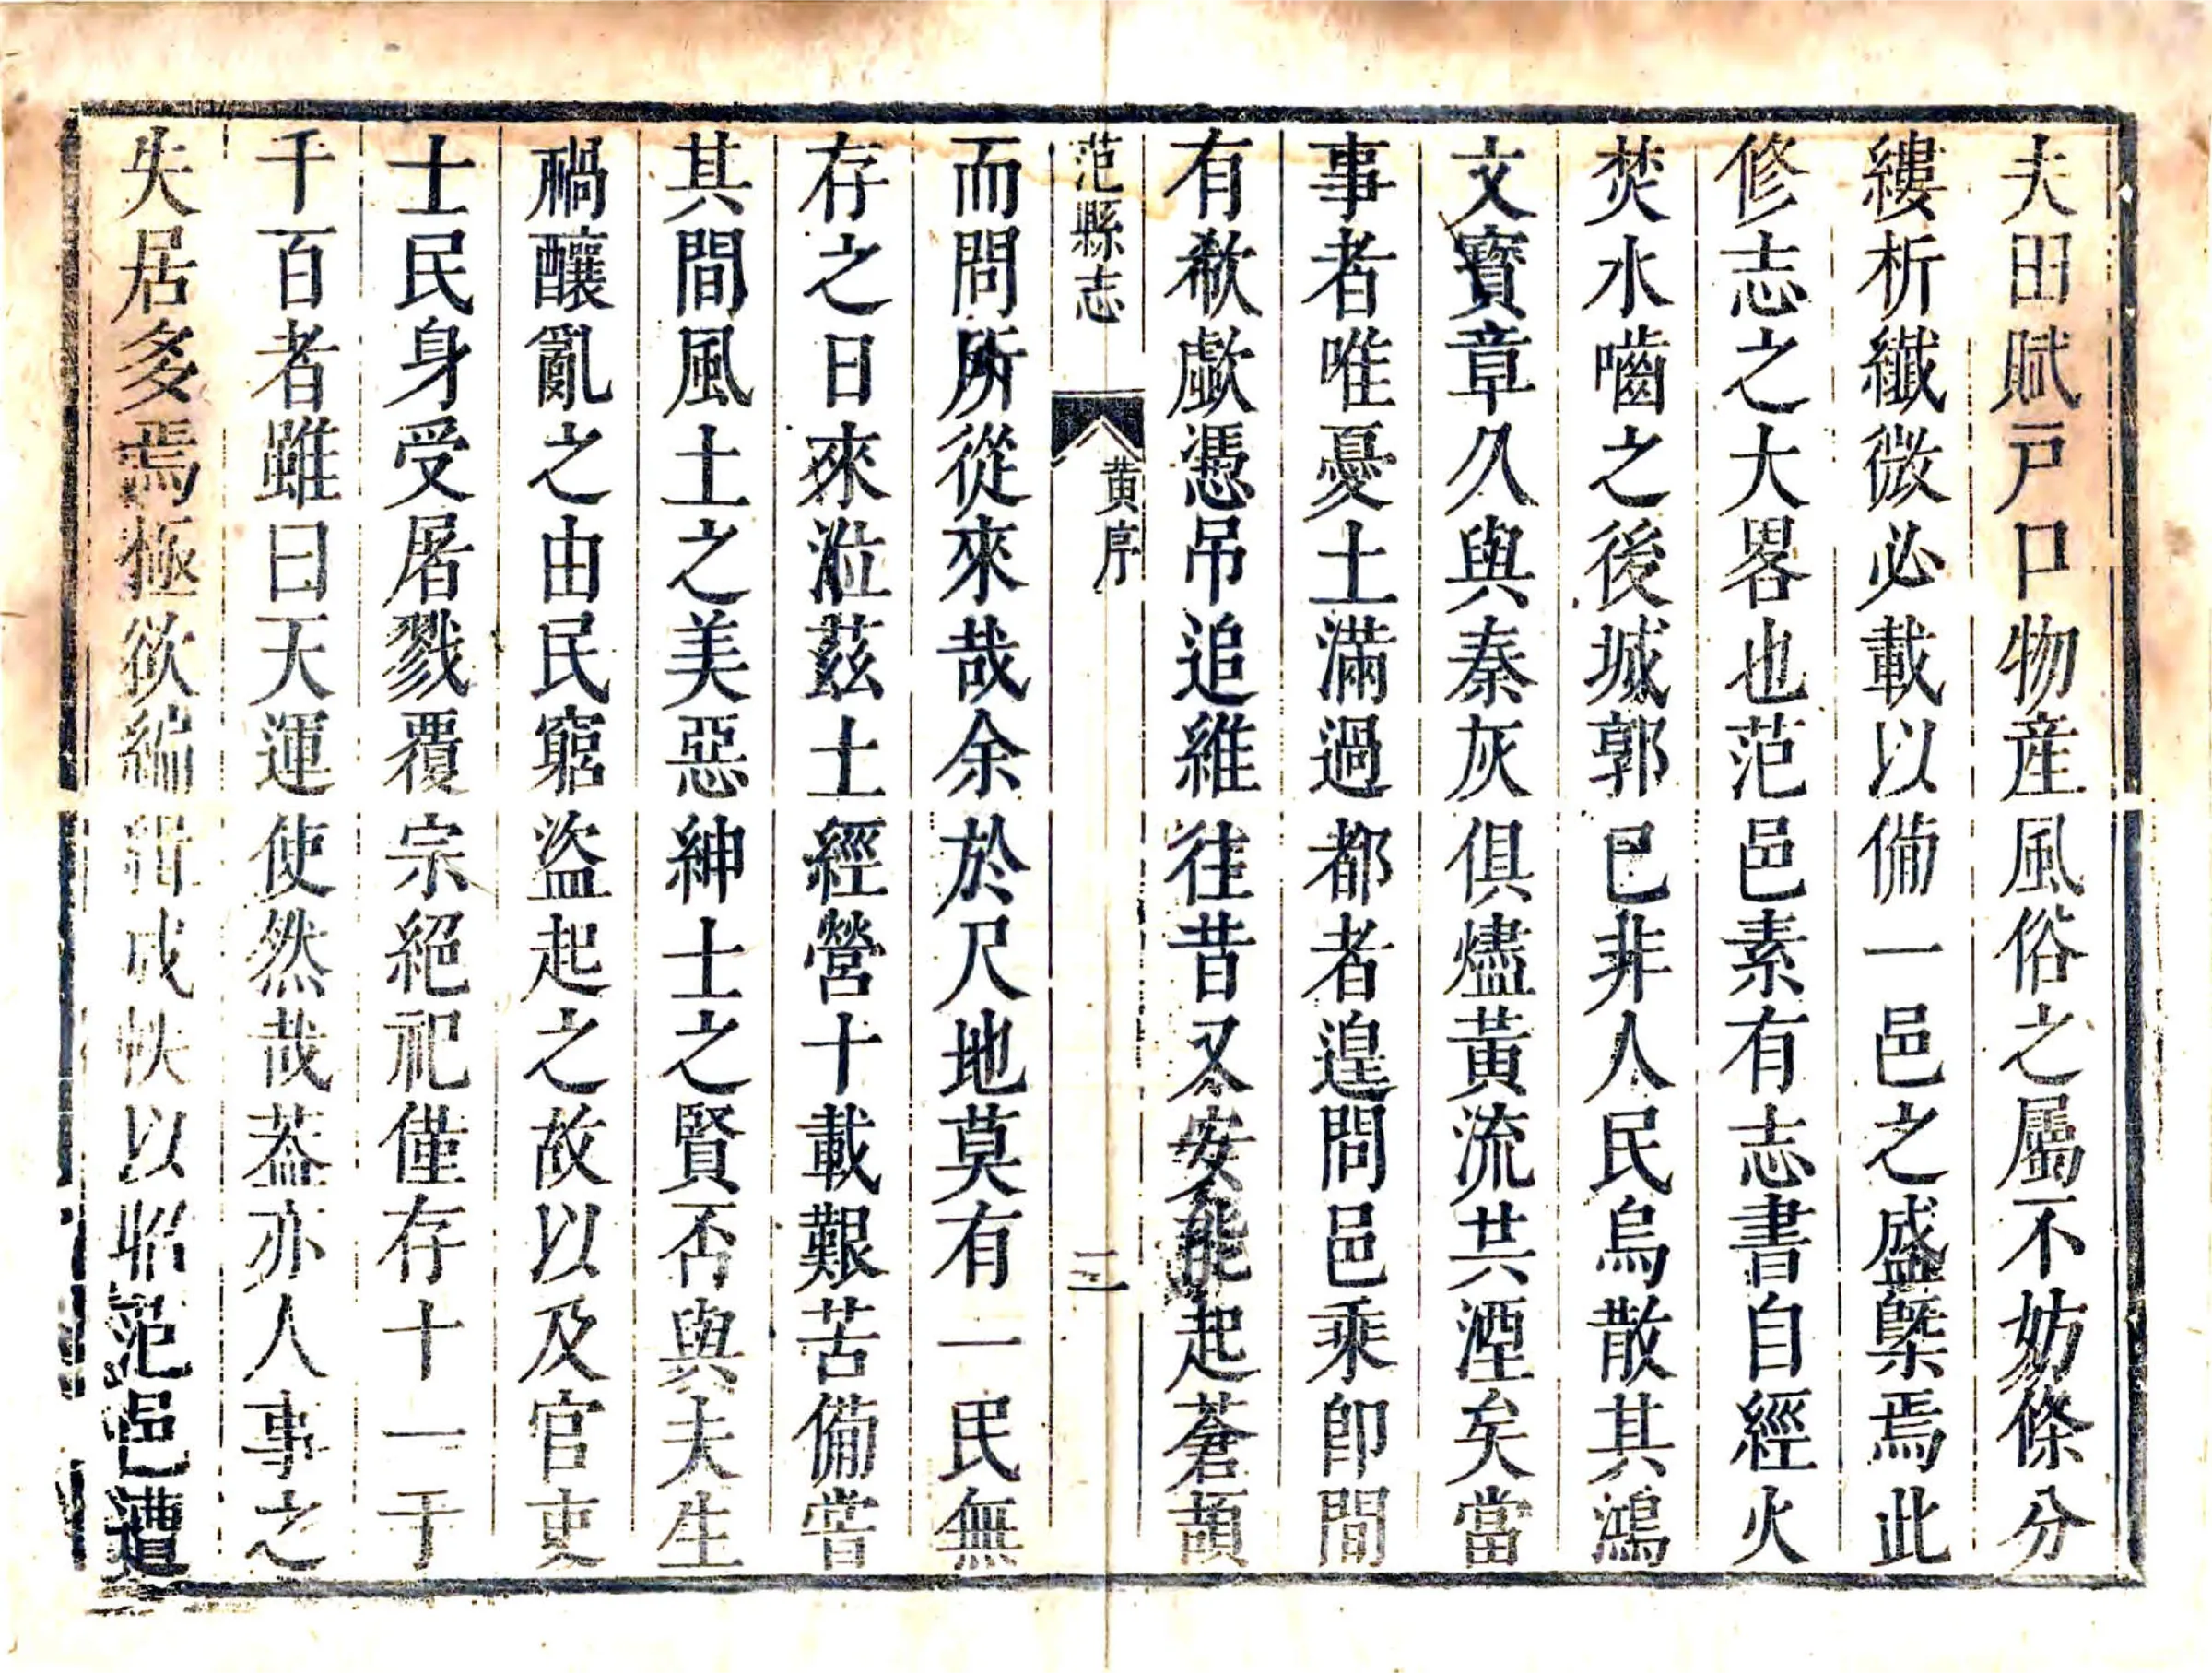 夫田賦戸口物産風俗之屬不妨條分
縷析纖微必載以備一邑之盛槩焉此
修志之大畧也范邑素有志書自經火
焚水嚙之後城郭已非人民烏散其鴻
文寳章久與秦灰俱燼黃流共湮矣當
事者唯憂土滿過都者遑問邑乘卽間
有欷歔憑吊追維徃昔又安能起蒼頡
范縣志
黄序
三
而問所從來哉余於尺地莫有一民無
存之日來涖茲土經營十載艱苦備嘗
其間風土之美惡紳士之賢否與夫生
禍釀亂之由民窮盜起之故以及官吏
士民身受屠戮覆宗絕祀僅存十一于
千百者雖曰天運使然哉葢亦人事之
失居多焉極欲編緝成帙以昭范邑遭